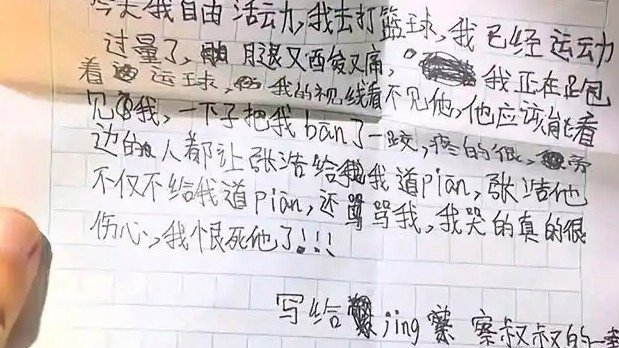 今天我自由活动,我去打篮球,我已经运动
过量了,月退又酉夋又痛,我正在足包
着运球,我的视线看不见他,他应该能看
见我,一下子把我ban了一跤,疼的很,旁
边的人都让张浩给我道piàn,张浩他
不仅不给我道piàn,还骂骂我,我哭的真的很
伤心,我恨死他了!!!
写给jing察叔叔的一